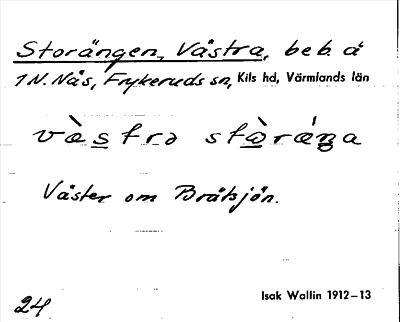 Storängen, Västra, beb. å
1 N. Nås, Frykeruds sn, Kils hd, Värmlands län
Väster om Bråtsjön.
24
Isak Wallin 1912–13